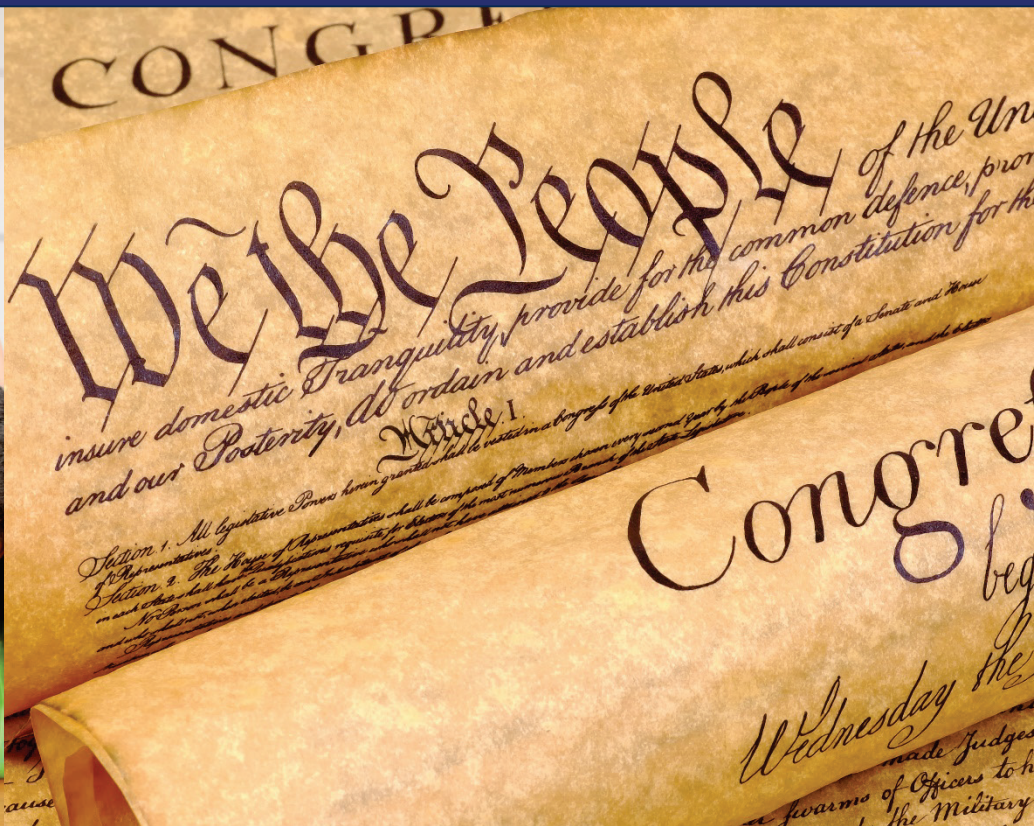 CONGRE
We the People of the Un
insure domestic Tranquility, provide for the common defence, pro
and our Posterity, do ordain and establish this Constitution for the
Article. I.
Section. 1. All legislative Powers herein granted shall be vested in a Congress of the United States, which shall consist of a Senate and House
of Representatives.
Section. 2. The House of Representatives shall be composed of Members chosen every second Year by the People of the several States, and the
Congre
beg
Wednesday the
made Judges
swarms of Officers to h
the Military
ause